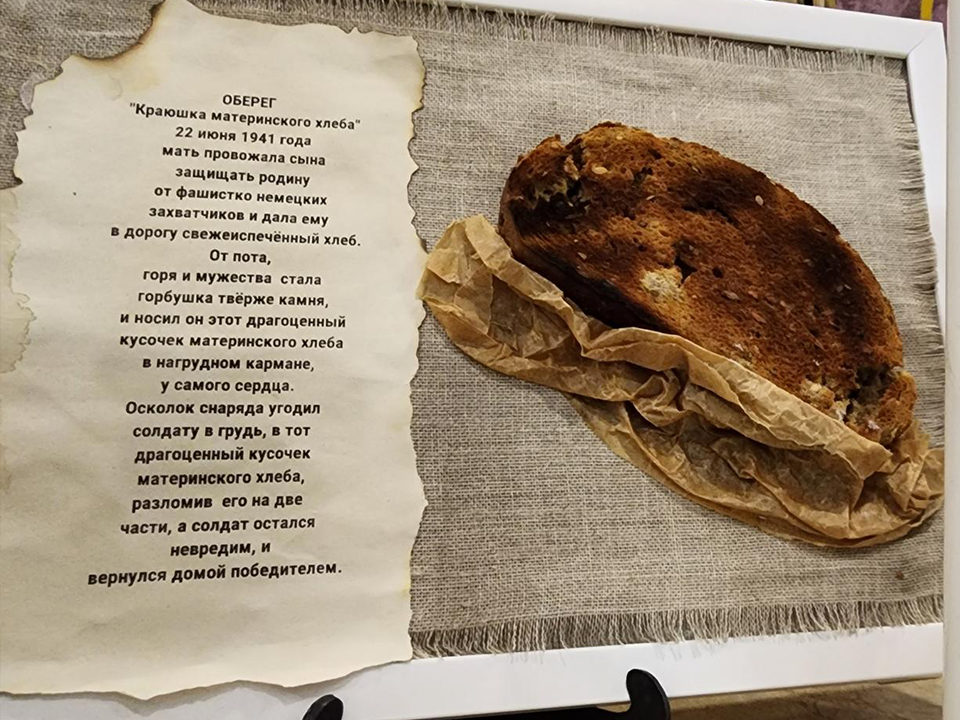 ОБЕРЕГ
"Краюшка материнского хлеба"
22 июня 1941 года
мать провожала сына
защищать родину
от фашистко немецких
захватчиков и дала ему
в дорогу свежеиспечённый хлеб.
От пота,
горя и мужества стала
горбушка твёрже камня,
и носил он этот драгоценный
кусочек материнского хлеба
в нагрудном кармане,
у самого сердца.
Осколок снаряда угодил
солдату в грудь, в тот
драгоценный кусочек
материнского хлеба,
разломив его на две
части, а солдат остался
невредим, и
вернулся домой победителем.